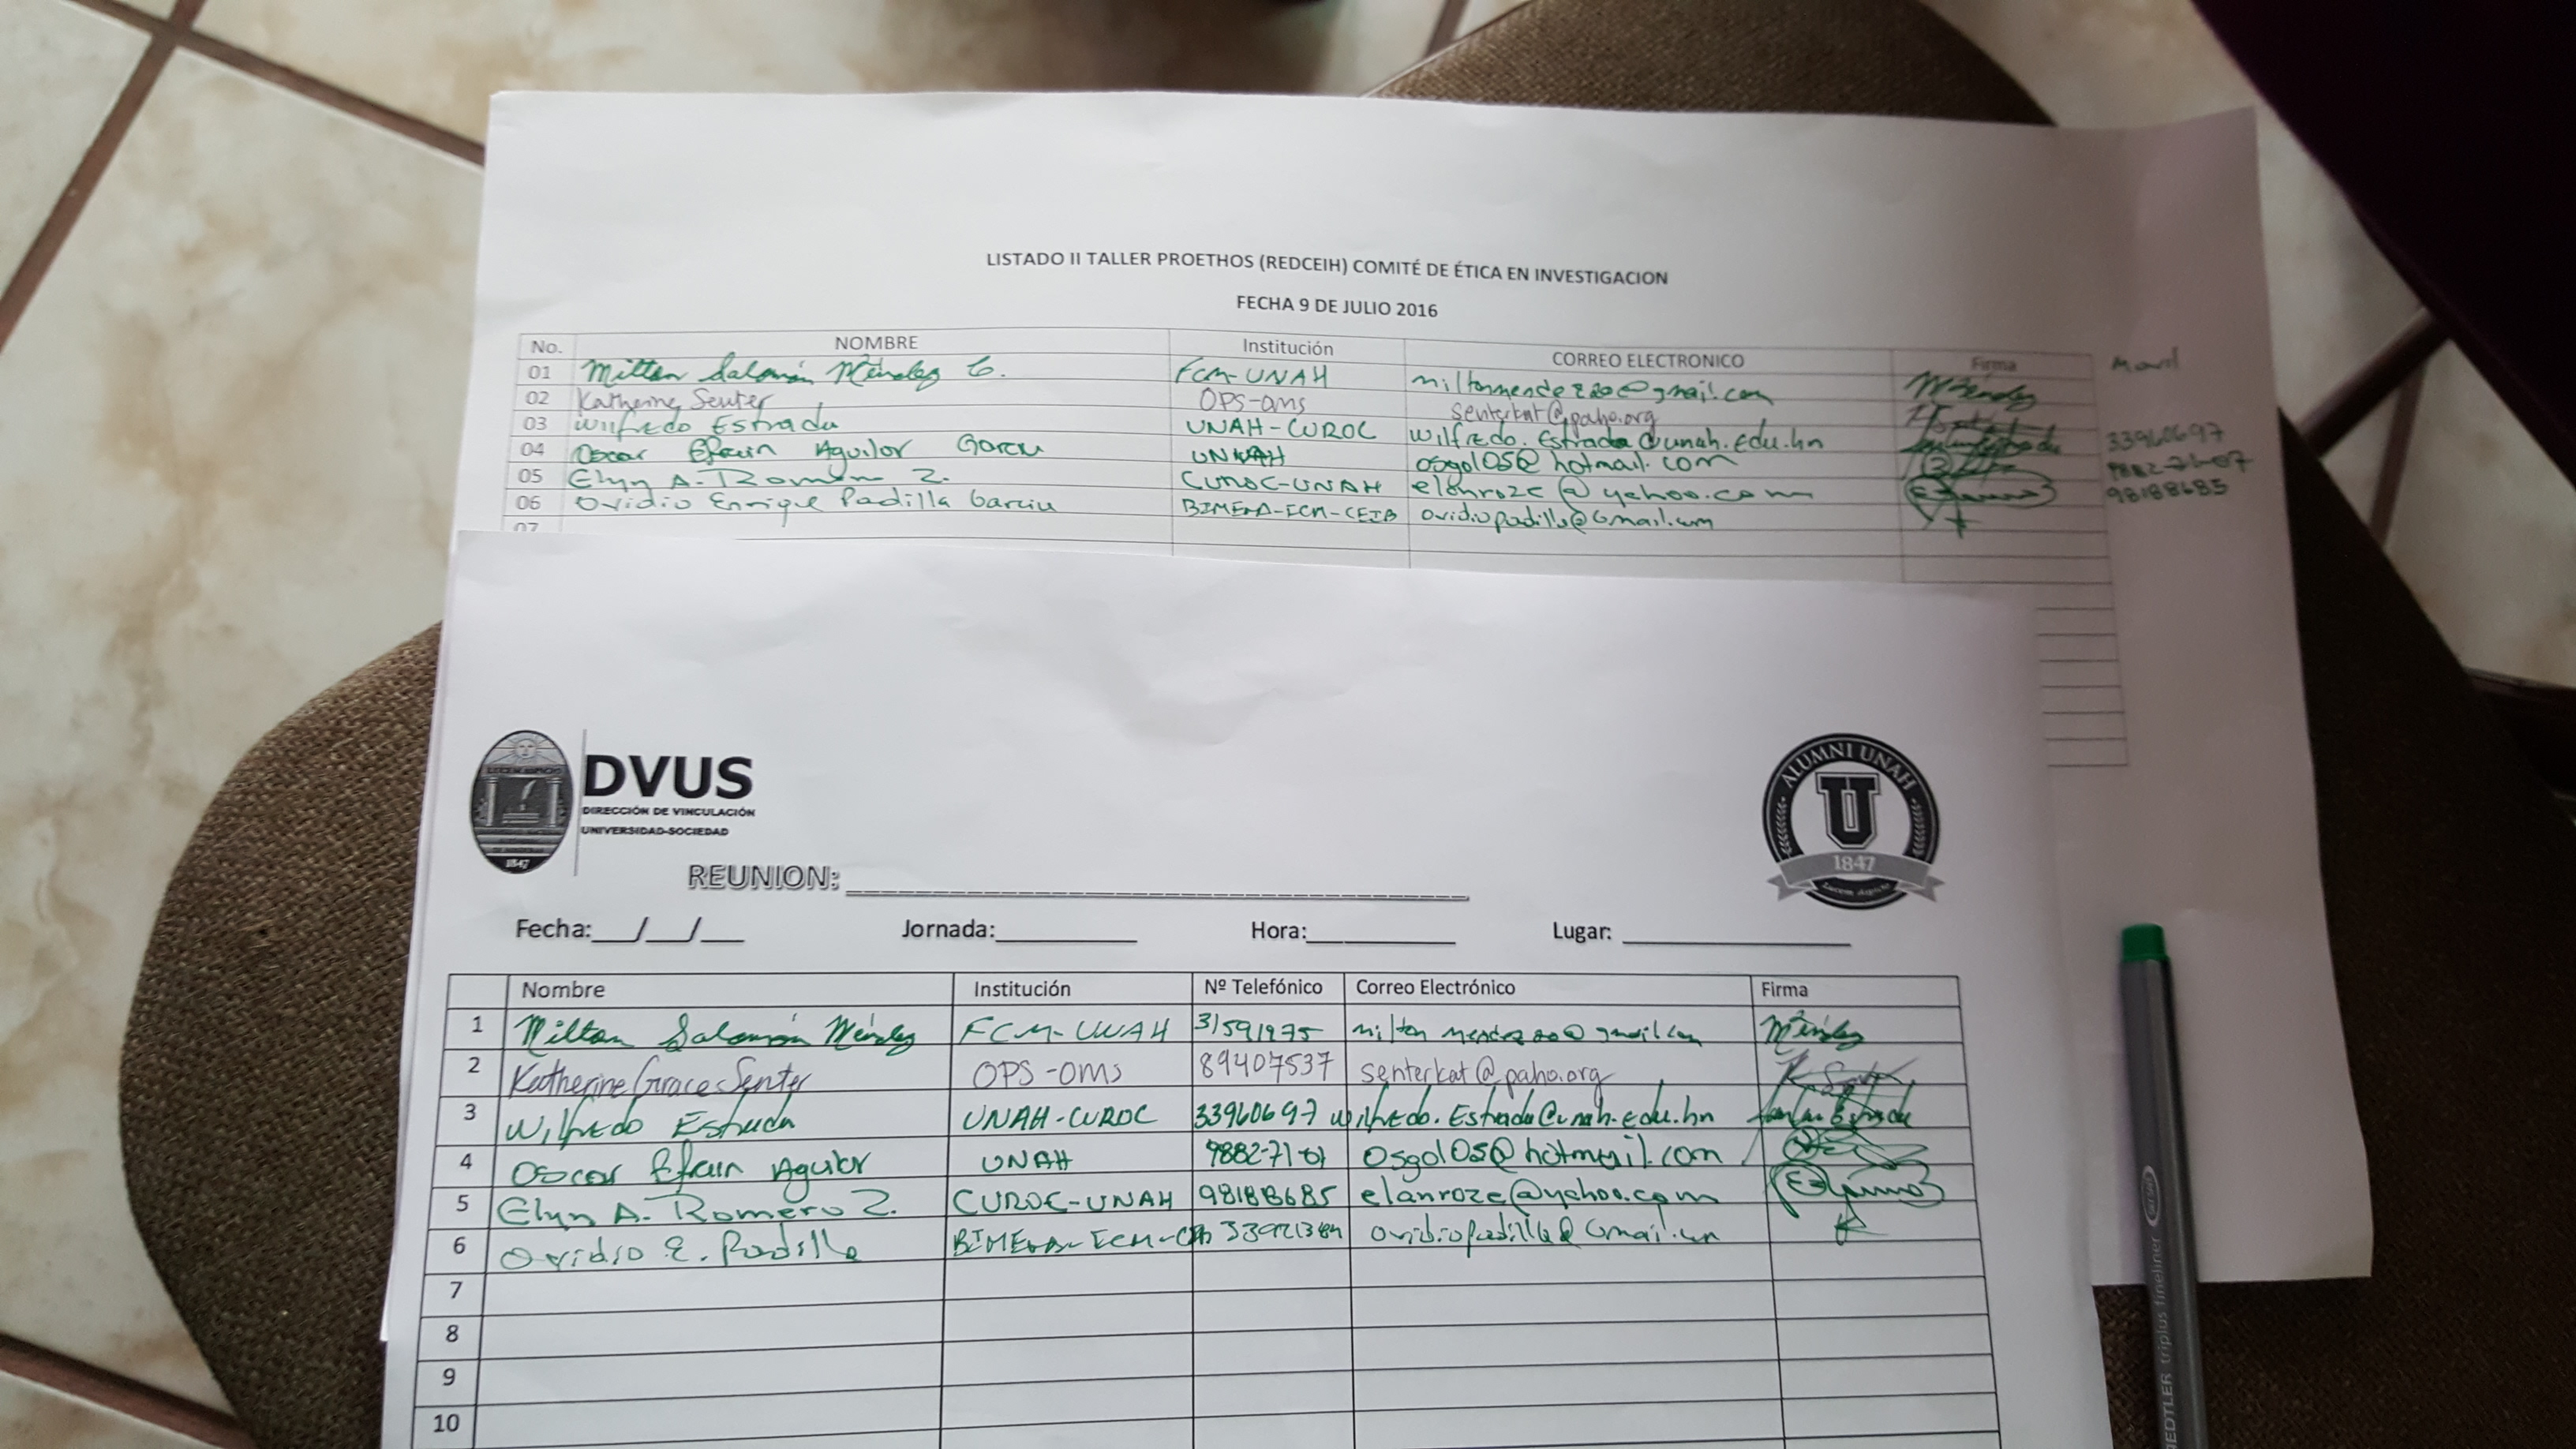 LISTADO II TALLER PROETHOS (REDCEIH) COMITÉ DE ÉTICA EN INVESTIGACION
FECHA 9 DE JULIO 2016
No. NOMBRE Institución CORREO ELECTRONICO Firma Movil
01 Milton Salomón Méndez C. FCM-UNAH Méndez
02 Katherine Senter OPS-OMS senterkat@paho.org
03 Wilfredo Estrada UNAH-CUROC wilfredo.Estrada@unah.Edu.hn 33960697
04 Oscar Efrain Aguilar Garcia UNAH osgal05@hotmail.com
05 Elyn A. Romero Z. CUROC-UNAH elanroze@yahoo.com 98188685
06 Ovidio Enrique Padilla Garcia ovidiopadilla@Gmail.com
07
DVUS
DIRECCIÓN DE VINCULACIÓN
UNIVERSIDAD-SOCIEDAD
1847
ALUMNI UNAH
U
1847
REUNION:
Fecha:___/___/___ Jornada: Hora: Lugar:
Nombre Institución Nº Telefónico Correo Electrónico Firma
1 Milton Salomón Méndez FCM-UNAH 31591975 Méndez
2 Katherine Grace Senter OPS-OMS 89407537 senterkat@paho.org
3 Wilfredo Estrada UNAH-CUROC 33960697 wilfredo.Estrada@unah.edu.hn
4 Oscar Efrain Aguilar UNAH osgal05@hotmail.com
5 Elyn A. Romero Z. CUROC-UNAH 98188685 elanroze@yahoo.com
6 Ovidio E. Padilla ovidiopadilla@Gmail.com
7
8
9
10
STAEDTLER triplus fineliner